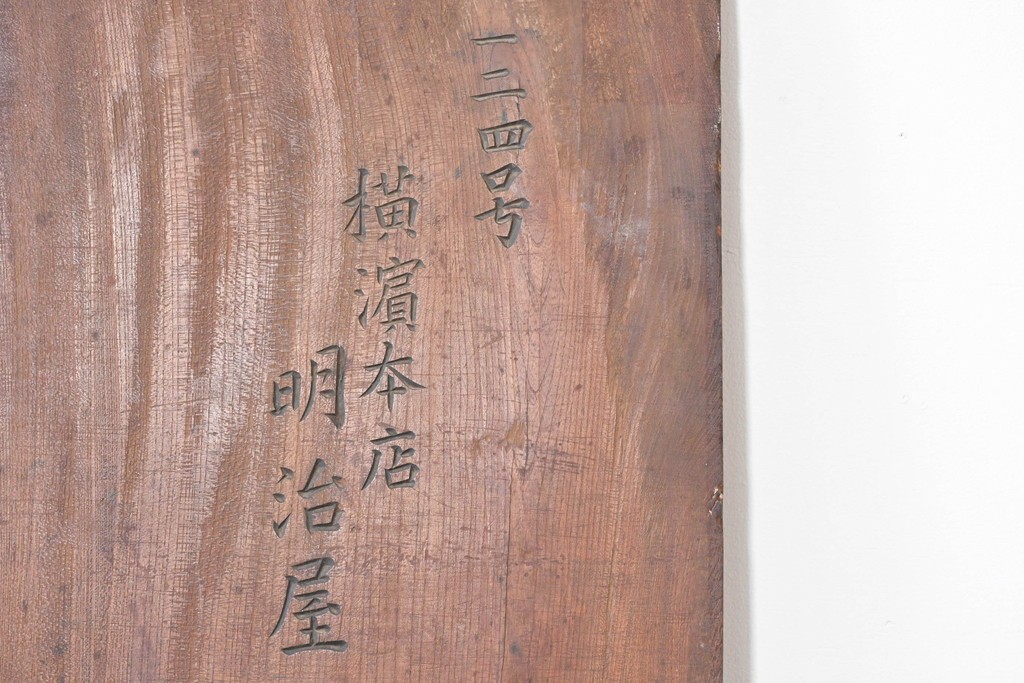 一二四号
橫濵本店
明治屋